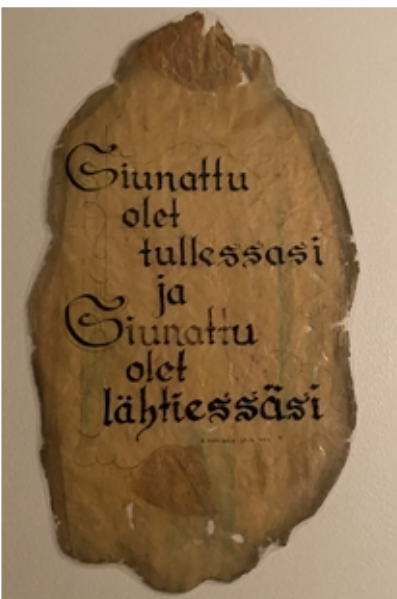 Siunattu
olet
tullessasi
ja
Siunattu
olet
lähtiessäsi